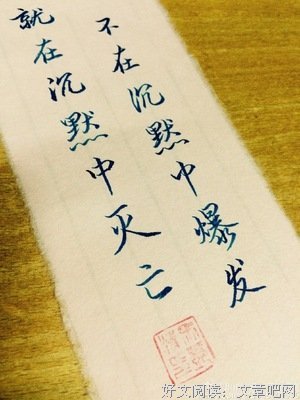 不在沉默中爆发
就在沉默中灭亡
好文阅读：文章吧网